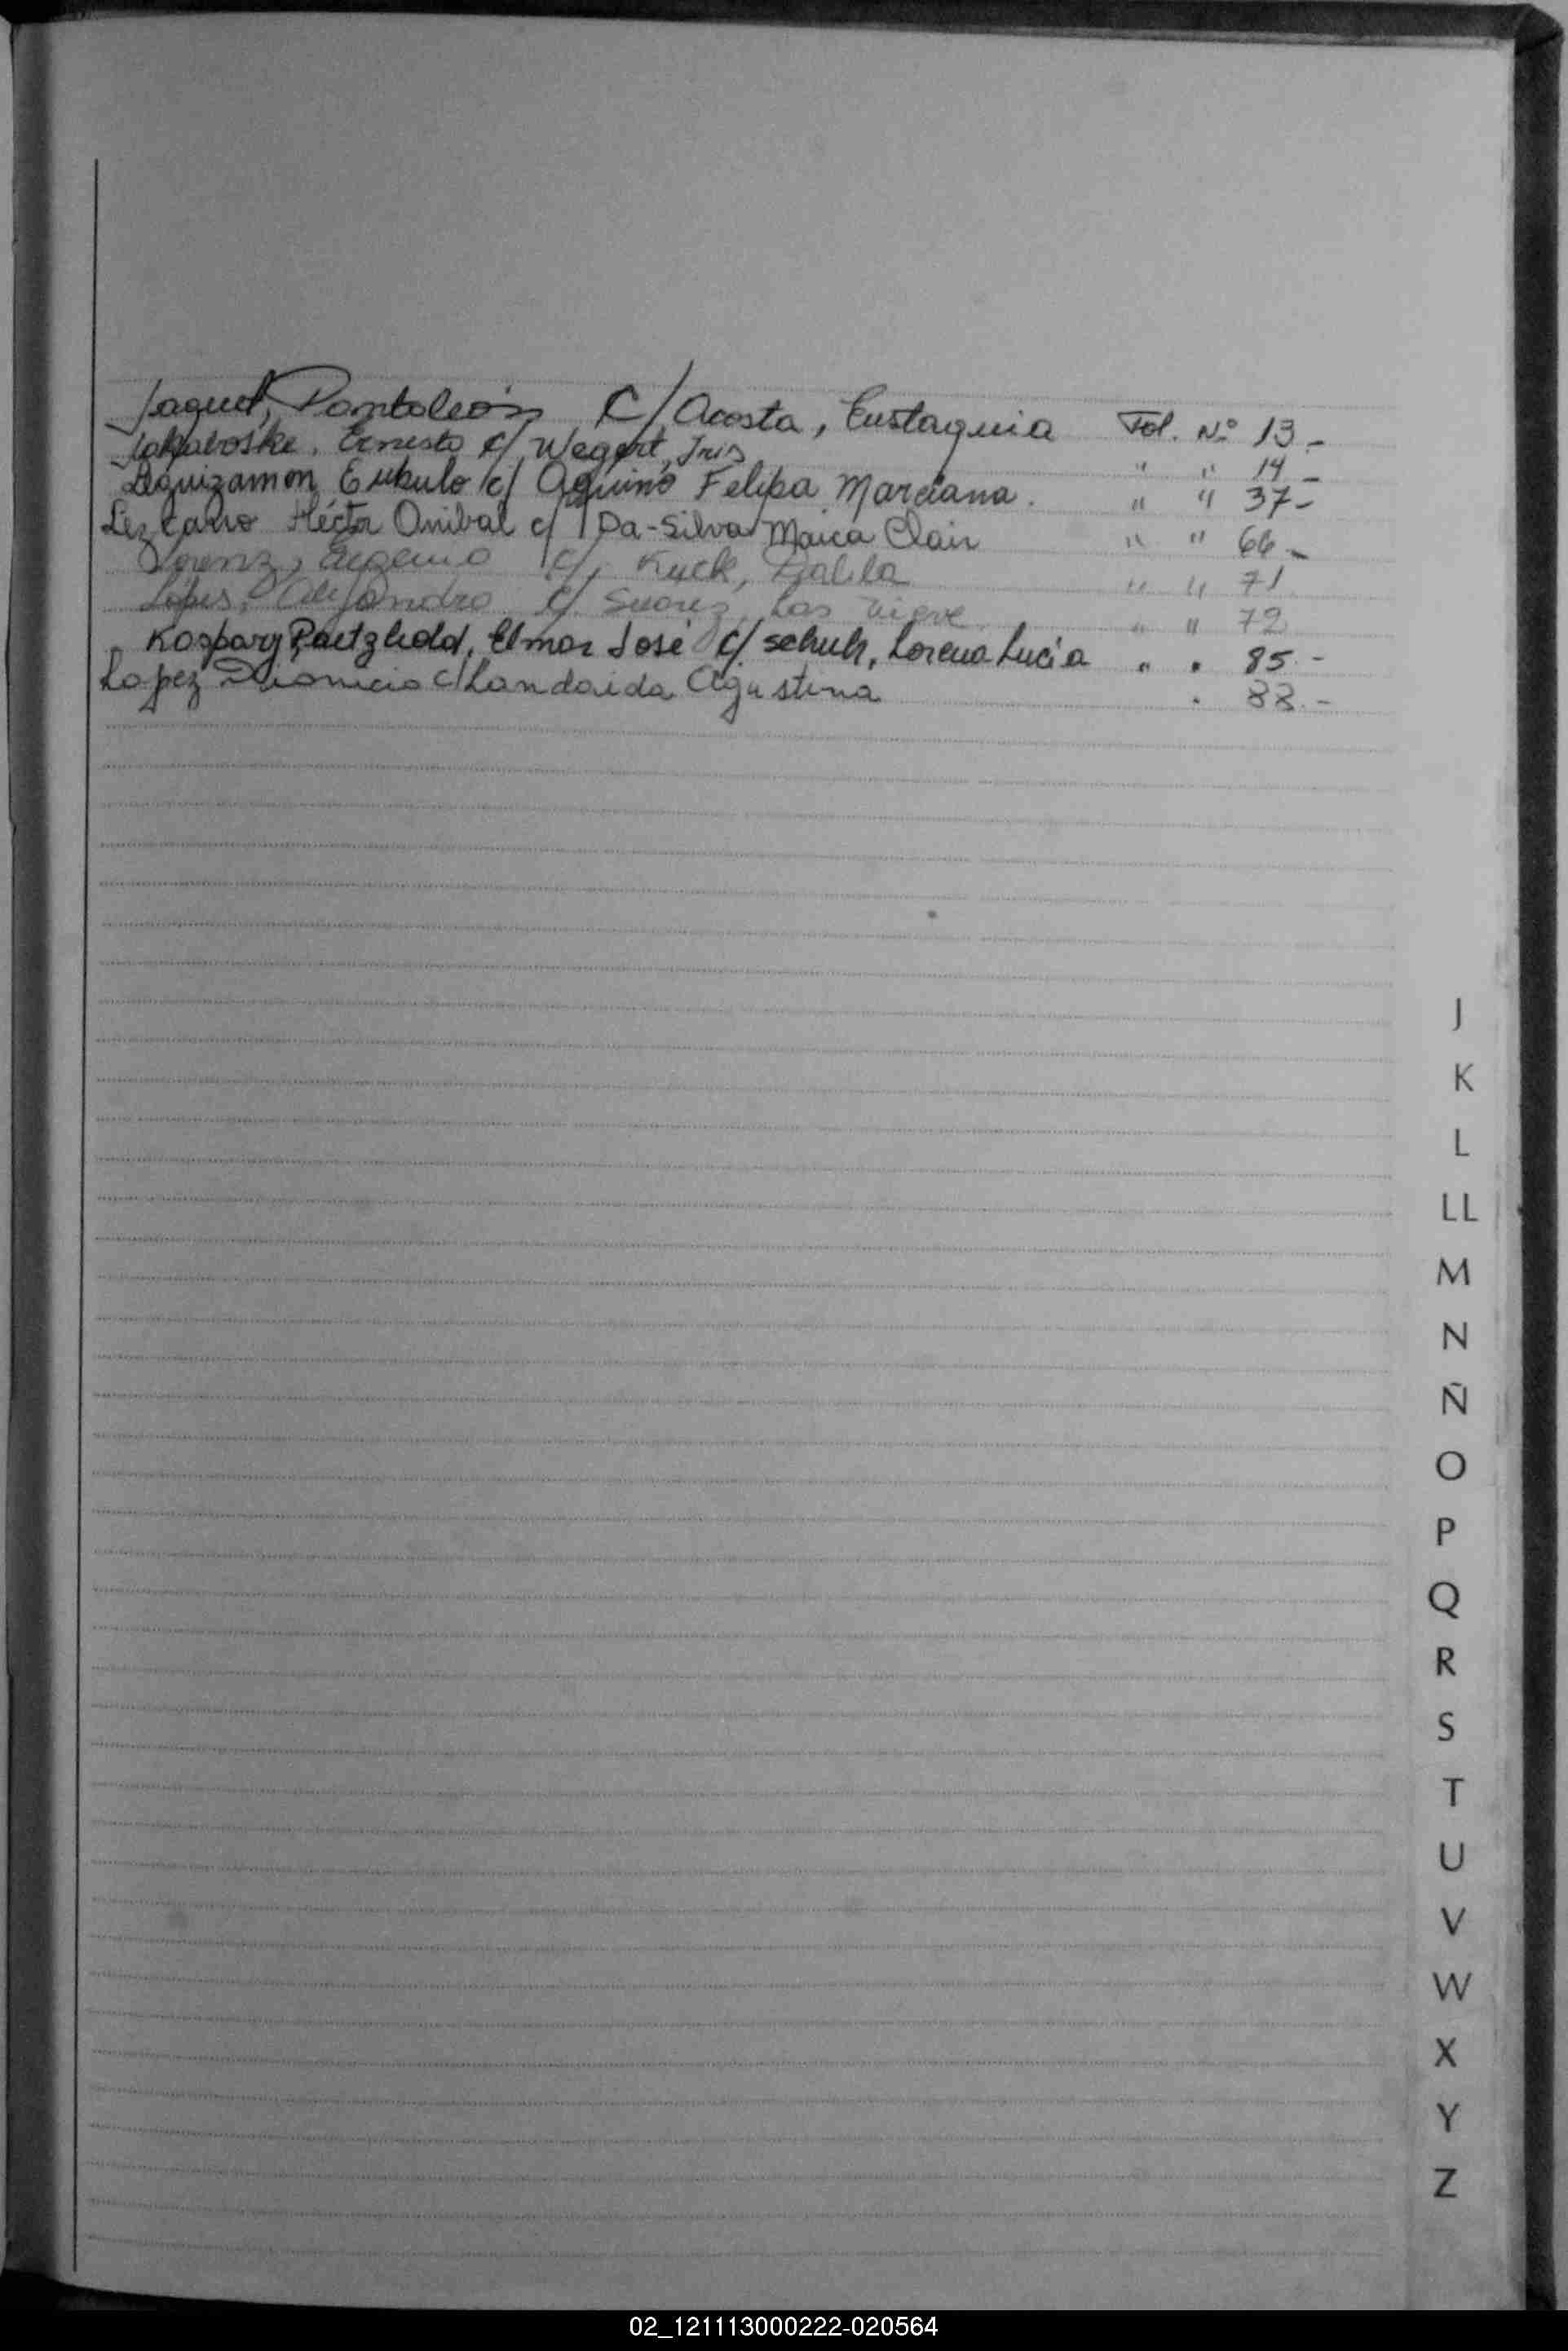 Jaquet, Pantaleón C/ Acosta, Eustaquia Fol. Nº 13.-
Ernesto c/ Wegert, Iris " " 14 -
Leguizamon Eubulo c/ Aquino Felipa Marciana. " " 37-
Lezcano Héctor Anibal c/ Da-Silva Maica Clair " " 66 -
Lorenz, Eugenio c/ Kuck, Dalila " " 71
Lópes, Alejandro c/ Suarez, Las Nieve. " " 72
Kaspary Paetzhold, Elmar José c/ Schuh, Lorena Lucia " " 85.-
Lopez Dionicio c/ Landaida Agustina " 88.-
J
K
L
LL
M
N
Ñ
O
P
Q
R
S
T
U
V
W
X
Y
Z
02_121113000222-020564